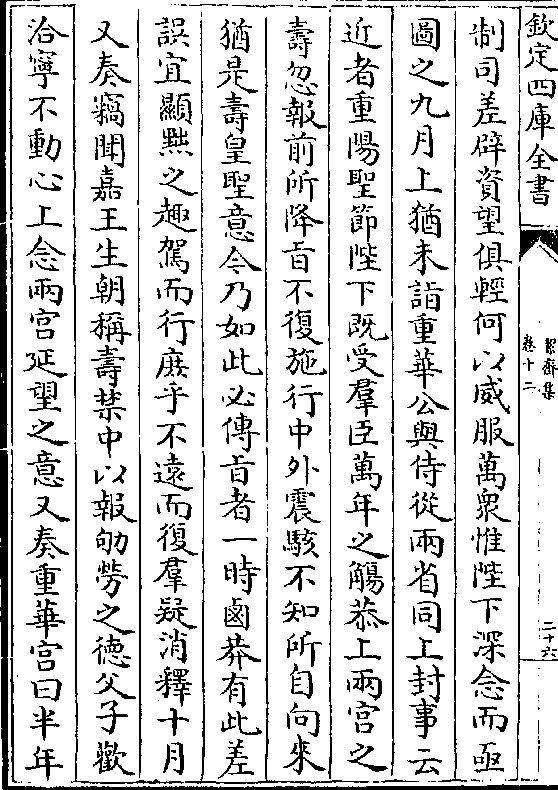 欽定四庫全書
絜齋集
卷十二
二十六
制司差辟資望俱輕何以威服萬衆惟陛下深念而亟
圖之九月上猶未詣重華公與侍從兩省同上封事云
近者重陽聖節陛下既受羣臣萬年之觴恭上兩宫之
壽忽報前所降㫖不復施行中外震駭不知所自向來
猶是壽皇聖意今乃如此必傳㫖者一時鹵莽有此差
誤宜顯黜之趣駕而行庶乎不遠而復羣疑消釋十月
又奏竊聞嘉王生朝稱壽禁中以報劬勞之徳父子歡
洽寧不動心上念兩宫延望之意又奏重華宫曰半年